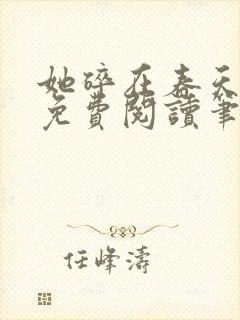 她碎在春天
免費閱讀筆
任峰濤